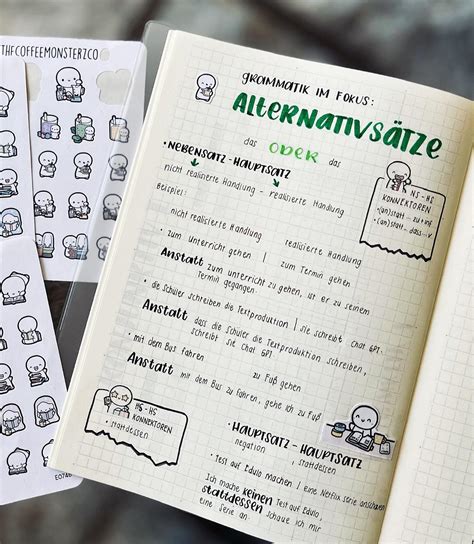 THECOFFEEMONSTERZCO
GRAMMATIK IM FOKUS:
ALTERNATIVSÄTZE
das ODER das
• NEBENSATZ - HAUPTSATZ
nicht realisierte Handlung - realisierte Handlung
Beispiel:
nicht realisierte Handlung | realisierte Handlung
• zum Unterricht gehen | zum Termin gehen
Anstatt zum Unterricht zu gehen, ist er zu seinem
Termin gegangen.
• die Schüler schreiben die Textproduktion | sie schreibt Chat GPT.
Anstatt dass die Schüler die Textproduktion schreiben,
schreibt sie Chat GPT.
• mit dem Bus fahren zu Fuß gehen
Anstatt mit dem Bus zu fahren, gehe ich zu Fuß
NS - HS
KONNEKTOREN
• (an)statt ... zu + inf
• (an)statt ... dass ... v
HS - HS
KONNEKTOREN
• stattdessen
• HAUPTSATZ - HAUPTSATZ
negation , stattdessen
• Test auf Edulo machen | eine Netflix serie anschauen
Ich mache keinen Test auf Edulo,
stattdessen schaue ich mir
eine Serie an.